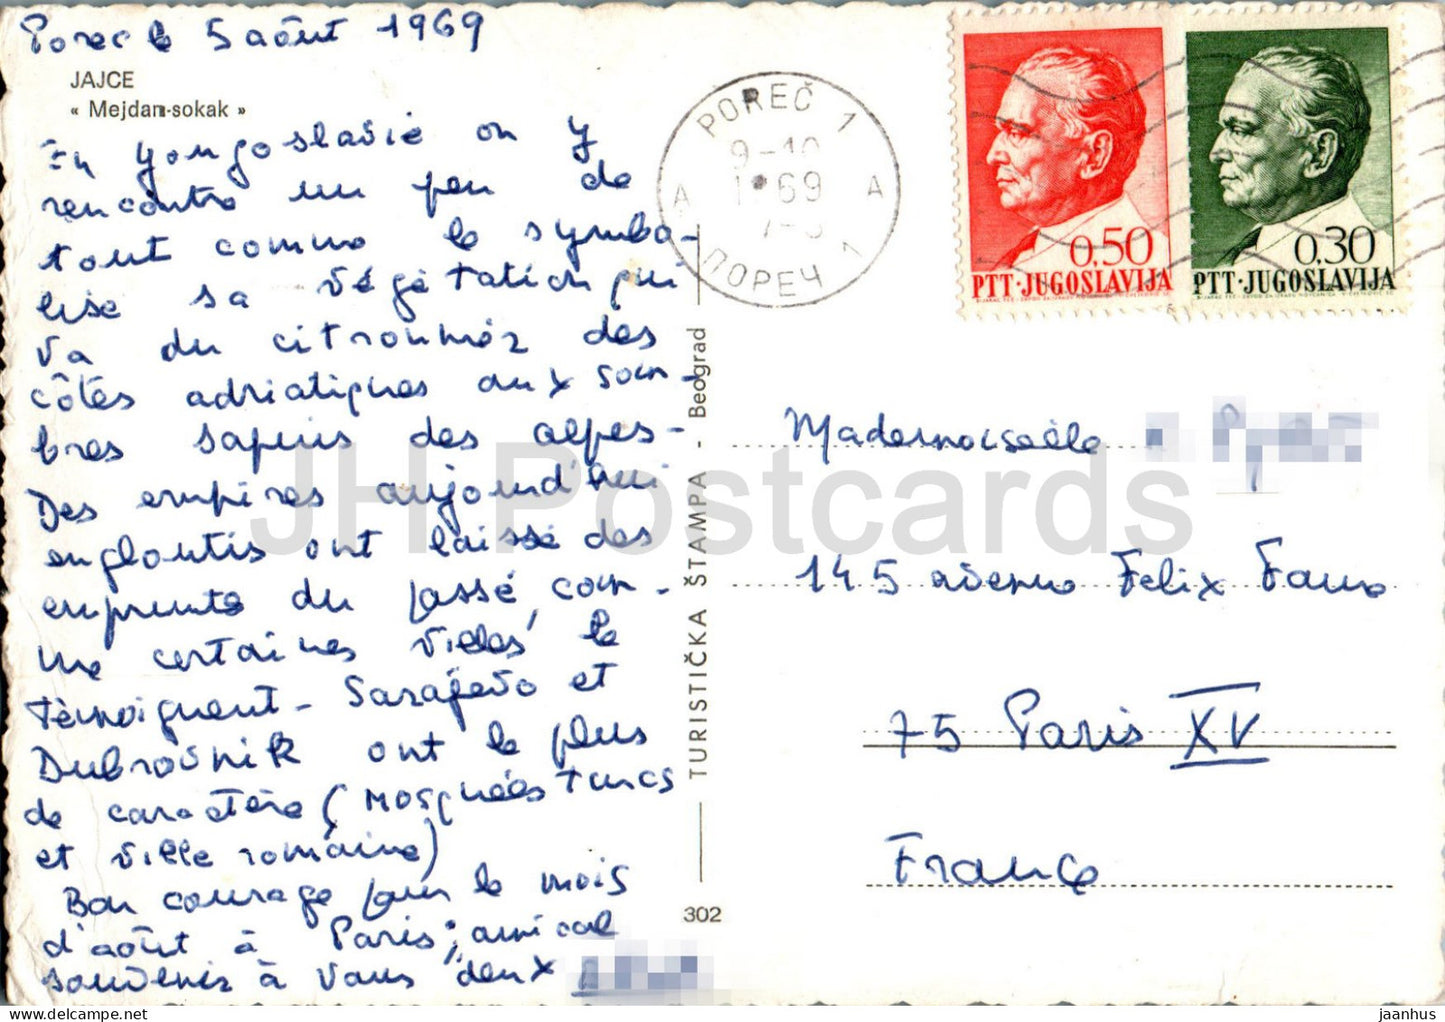 Porec le 5 août 1969
JAJCE
« Mejdan-sokak »
En Yougoslavie on y
rencontre un peu de
tout comme le symbo-
lise sa végétation qui
va du citronnier des
côtes adriatiques aux som-
bres sapins des alpes-
Des empires aujourd'hui
engloutis ont laissé des
empreintes du passé, com-
me certaines villes le
témoignent - Sarajevo et
Dubrovnik ont le plus
de caractère (Mosquées turcs
et ville romaine)
Bon courage pour le mois
d'août à Paris; amical
souvenir à vous deux
TURISTIČKA ŠTAMPA - Beograd
302
POREČ 1
9-10
1 69
A A
ПОРЕЧ 1
0,50
PTT·JUGOSLAVIJA
0,30
PTT·JUGOSLAVIJA
Mademoiselle
145 avenue Felix Faure
75 Paris XV
France
JH Postcards
jaanhus © HipPostcard.com